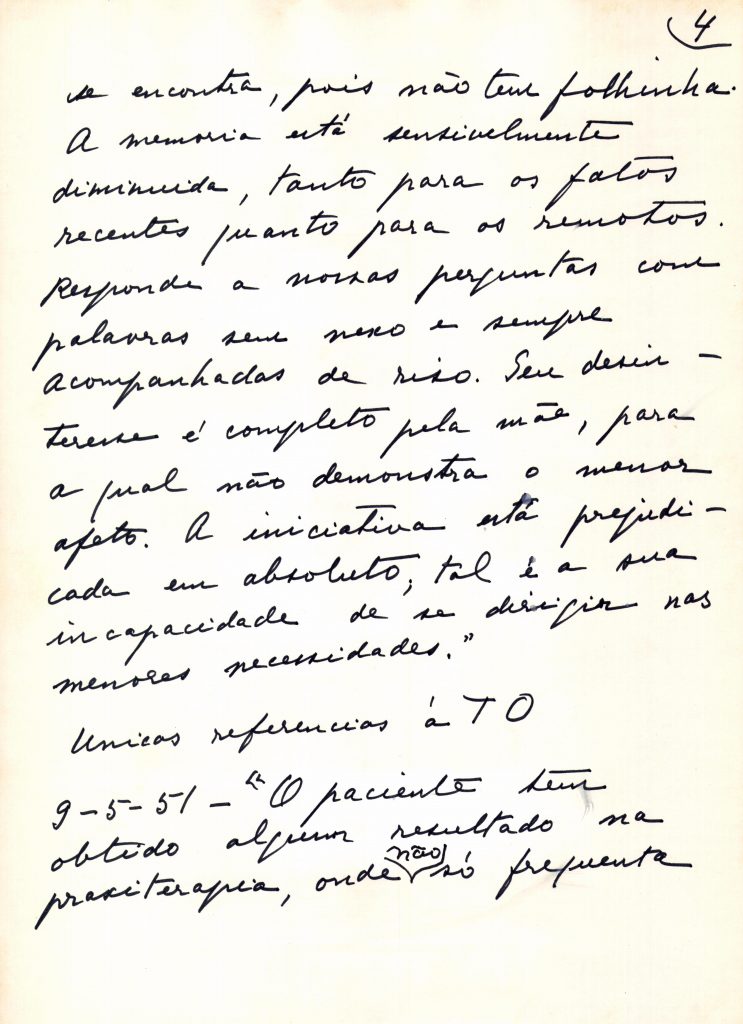 4
se encontra, pois não tem folhinha.
A memoria está sensivelmente
diminuida, tanto para os fatos
recentes quanto para os remotos.
Responde a nossas perguntas com
palavras sem nexo e sempre
acompanhadas de riso. Seu desin-
teresse é completo pela mãe, para
a qual não demonstra o menor
afeto. A iniciativa está prejudi-
cada em absoluto, tal é a sua
incapacidade de se dirigir nas
menores necessidades."
Unicas referencias á TO
9-5-51 - "O paciente tem
obtido algum resultado na
praxiterapia, onde não só frequenta